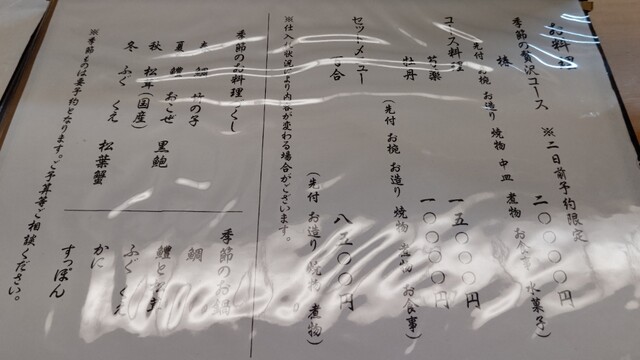 お品料理
季節の贅沢コース ※二日前予約限定
椿 二〇〇〇〇円
先付 お椀 お造り 焼物 中皿 煮物 お食事 水菓子)
コース料理
芍薬 一五〇〇〇円
牡丹 一〇〇〇〇円
(先付 お椀 お造り 焼物 煮物 お食事)
セットメニュー
百合 八五〇〇円
(先付 お造り 焼物 煮物)
※仕入れ状況により内容が変わる場合がございます。
季節のお料理づくし
春 鯛 竹の子
夏 鱧 おこぜ 黒鮑
秋 松茸(国産)
冬 ふぐ くえ 松葉蟹
※季節ものは要予約となります。ご予算等ご相談ください。
季節のお鍋
鯛
鱧と松茸
ふぐ くえ
かに
すっぽん